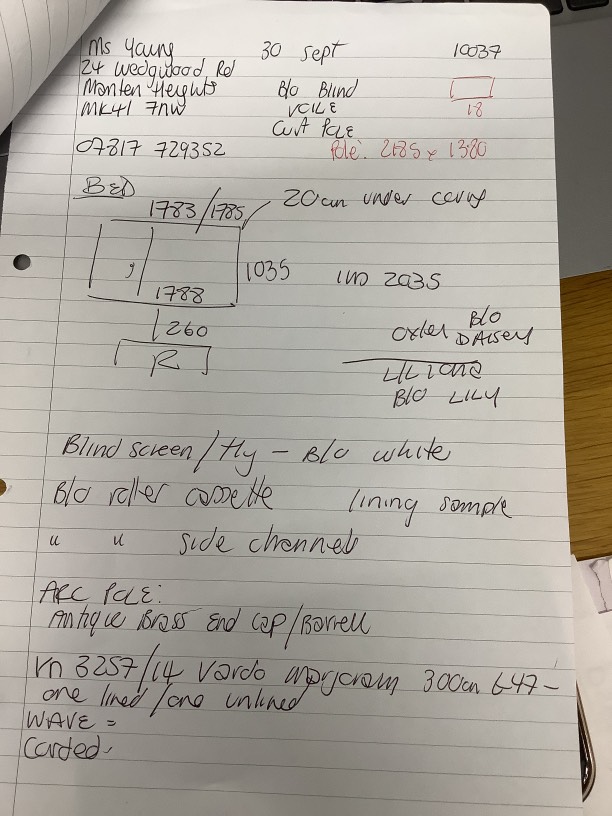 Ms Young 30 Sept 10037
24 Wedgwood Rd
Manten Heights B/o Blind
MK41 7NW VOILE 18
Curt POLE
07817 729352 Pole: 2185 x 1380
BED
1783/1785 20cm under
1035 2035
1788
260 B/o
R DAISEY
B/O LILY
Blind screen/fly - B/o white
B/o roller cassette lining sample
" " side channels
ARC POLE:
Antique Brass End cap/Barrell
Vn 3257/14 Vardo marjoram 300cm £47-
one lined/one unlined
WAVE =
Corded-